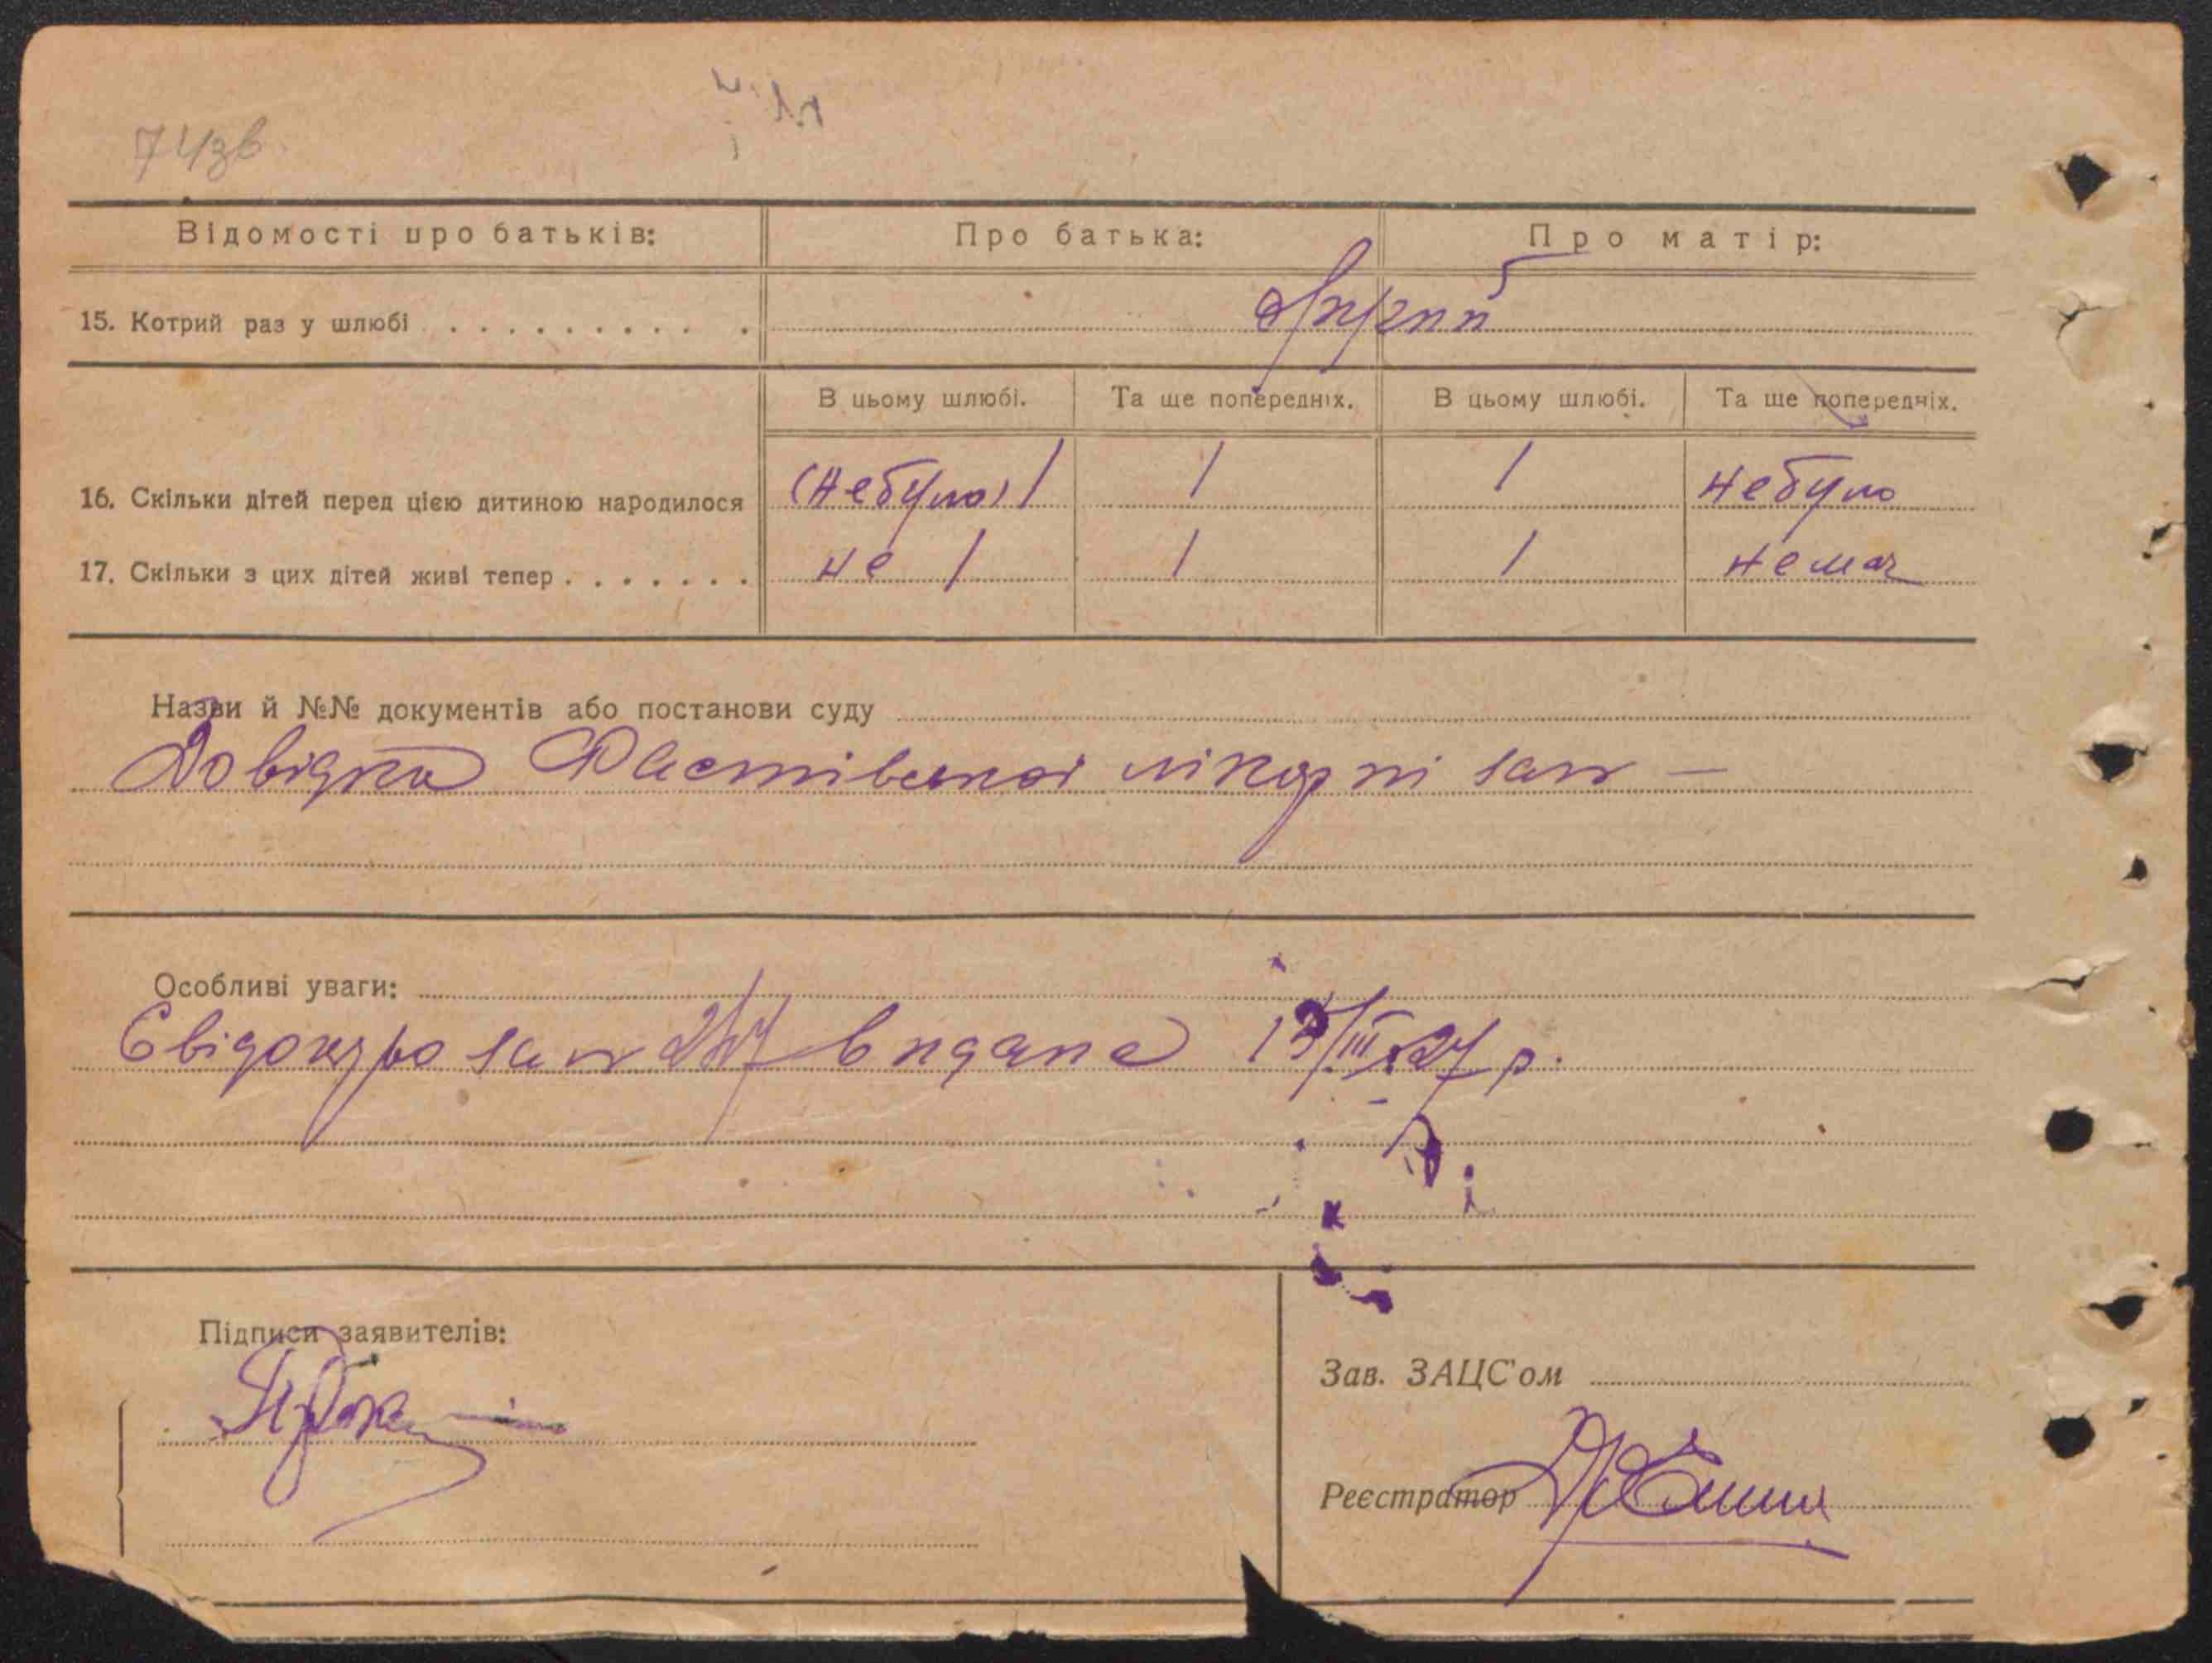 74зв.
Відомості про батьків: Про батька: Про матір:
15. Котрий раз у шлюбі другий
В цьому шлюбі. Та ще попередніх. В цьому шлюбі. Та ще попередніх.
16. Скільки дітей перед цією дитиною народилося (Небуло) / / / Небуло
17. Скільки з цих дітей живі тепер не / / / Нема
Назви й №№ документів або постанови суду
Довідка Фастівської лікарні за №  —
Особливі уваги:
Свідоцтво за № 247 видане 13/III 27 р.
Підписи заявителів:
Зав. ЗАЦС'ом
Реєстратор